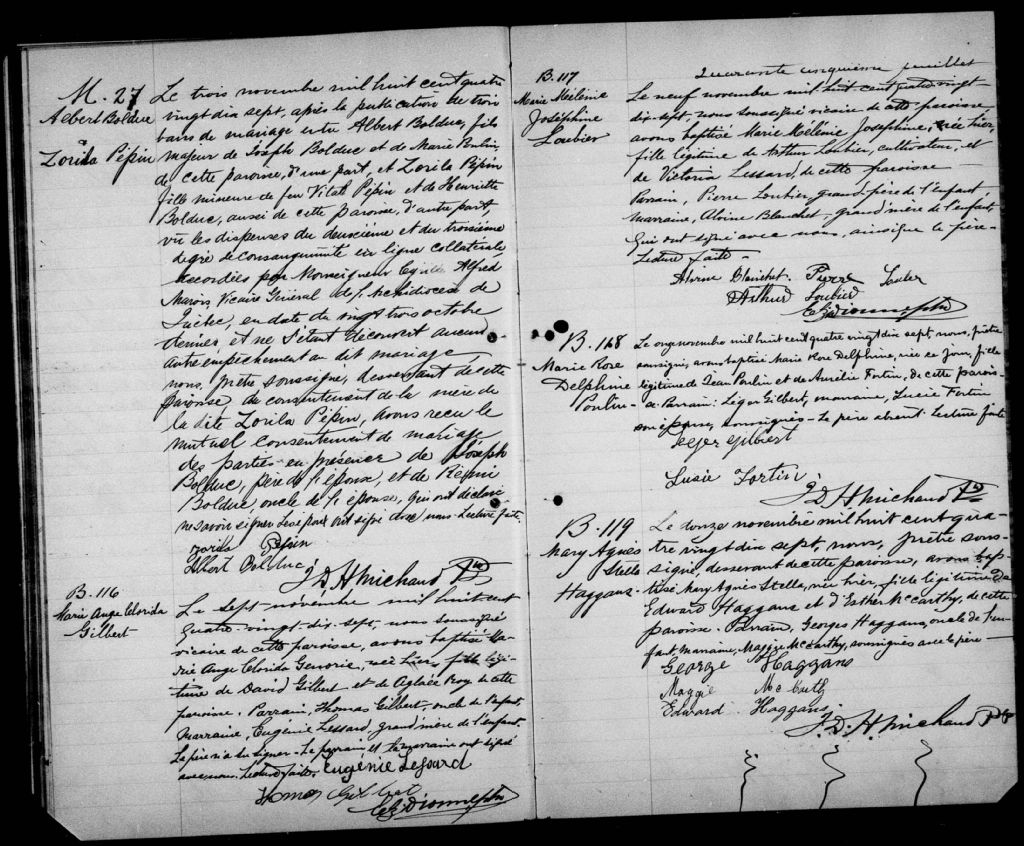 M. 27
Albert Bolduc
Zorila Pépin
Le trois novembre mil huit cent quatre
vingt dix sept, après la publication de trois
bans de mariage entre Albert Bolduc, fils
majeur de Joseph Bolduc et de Marie Poulin,
de cette paroisse, d'une part, et Zorila Pépin
fille mineure de feu Vital Pépin et de Henriette
Bolduc, aussi de cette paroisse, d'autre part,
vu les dispenses du deuxième et du troisième
degré de consanguinité en ligne collatérale,
accordées par Monseigneur Cyrille Alfred
Marois, Vicaire Général de l'Archidiocèse de
Québec, en date du vingt trois octobre
dernier, et ne s'étant découvert aucun
autre empêchement au dit mariage,
nous, prêtre soussigné, desservant de cette
paroisse du consentement de la mère de
la dite Zorila Pépin, avons reçu le
mutuel consentement de mariage
des parties en présence de Joseph
Bolduc, père de l'époux, et de Rémi
Bolduc, oncle de l'épouse, qui ont déclaré
ne savoir signer. Les époux ont signé avec nous. Lecture faite.
Zorila Pépin
Albert Bolduc
J. D. H. Michaud Ptr
B. 116
Marie Ange Clorida
Gilbert
Le sept novembre mil huit cent
quatre-vingt-dix-sept, nous soussigné
vicaire de cette paroisse, avons baptisé Ma-
rie Ange Clorida, née hier, fille légi-
time de David Gilbert et de Aglaée Roy de cette
paroisse. Parrain, Thomas Gilbert, oncle de l'enfant,
Marraine, Eugénie Lessard, grand'mère de l'enfant.
Le père n'a su signer. Le parrain et la marraine ont signé
avec nous. Lecture faite. Eugénie Lessard
Thomas Gilbert
Dionne ptre
Quarante cinquième feuillet
B. 117
Marie Mélénie
Joséphine
Loubier
Le neuf novembre mil huit cent quatre vingt
dix-sept, nous soussigné vicaire de cette paroisse,
avons baptisé Marie Mélénie Joséphine, née hier,
fille légitime de Arthur Loubier, cultivateur, et
de Victoria Lessard, de cette paroisse
Parrain, Pierre Loubier, grand-père de l'enfant,
marraine, Alvine Blanchet, grand'mère de l'enfant,
qui ont signé avec nous, ainsi que le père.
Lecture faite.
Alvine Blanchet Pierre Loubier
Arthur Loubier
Dionne ptre
B. 118
Marie Rose
Delphine
Poulin
Le onze novembre mil huit cent quatre vingt dix sept, nous, prêtre
soussigné, avons baptisé Marie Rose Delphine, née ce jour, fille
légitime de Jean Poulin et de Aurélie Fortin, de cette parois-
se. Parrain: Léger Gilbert, marraine, Lucie Fortin
son épouse, soussignés. Le père absent. Lecture faite
Leger Gilbert
Lusie Fortin
J. D. H. Michaud Ptr
B. 119
Mary Agnès
Stella
Haggans
Le douze novembre mil huit cent qua-
tre vingt dix sept, nous, prêtre sous-
signé, desservant de cette paroisse, avons bap-
tisé Mary Agnès Stella, née hier, fille légitime de
Edward Haggans et d'Esther McCarthy, de cette
paroisse. Parrain, Georges Haggans, oncle de l'en-
fant, Marraine, Maggie McCarthy, soussignés avec le père
George Haggans
Maggie McCarthy
Edward Haggans
J. D. H. Michaud Ptr